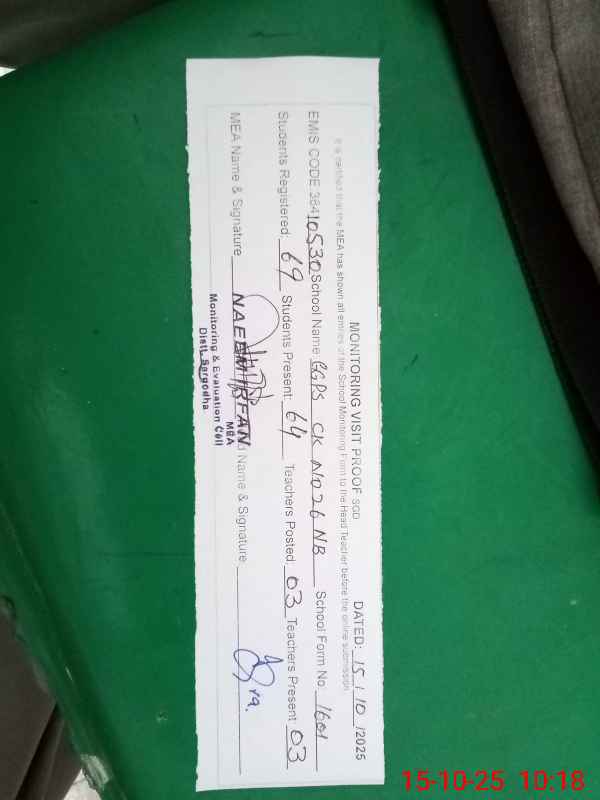 MONITORING VISIT PROOF SGD DATED: 15 / 10 /2025
It is certified that the MEA has shown all entries of the School Monitoring Form to the Head Teacher before the online submission
EMIS CODE 38410530 School Name GGPS CK NO 26 NB School Form No: 1601
Students Registered: 69 Students Present: 64 Teachers Posted 03 Teachers Present 03
MEA Name & Signature NAEEM IRFAN Name & Signature
MEA
Monitoring & Evaluation Cell
Distt. Sargodha
15-10-25 10:18